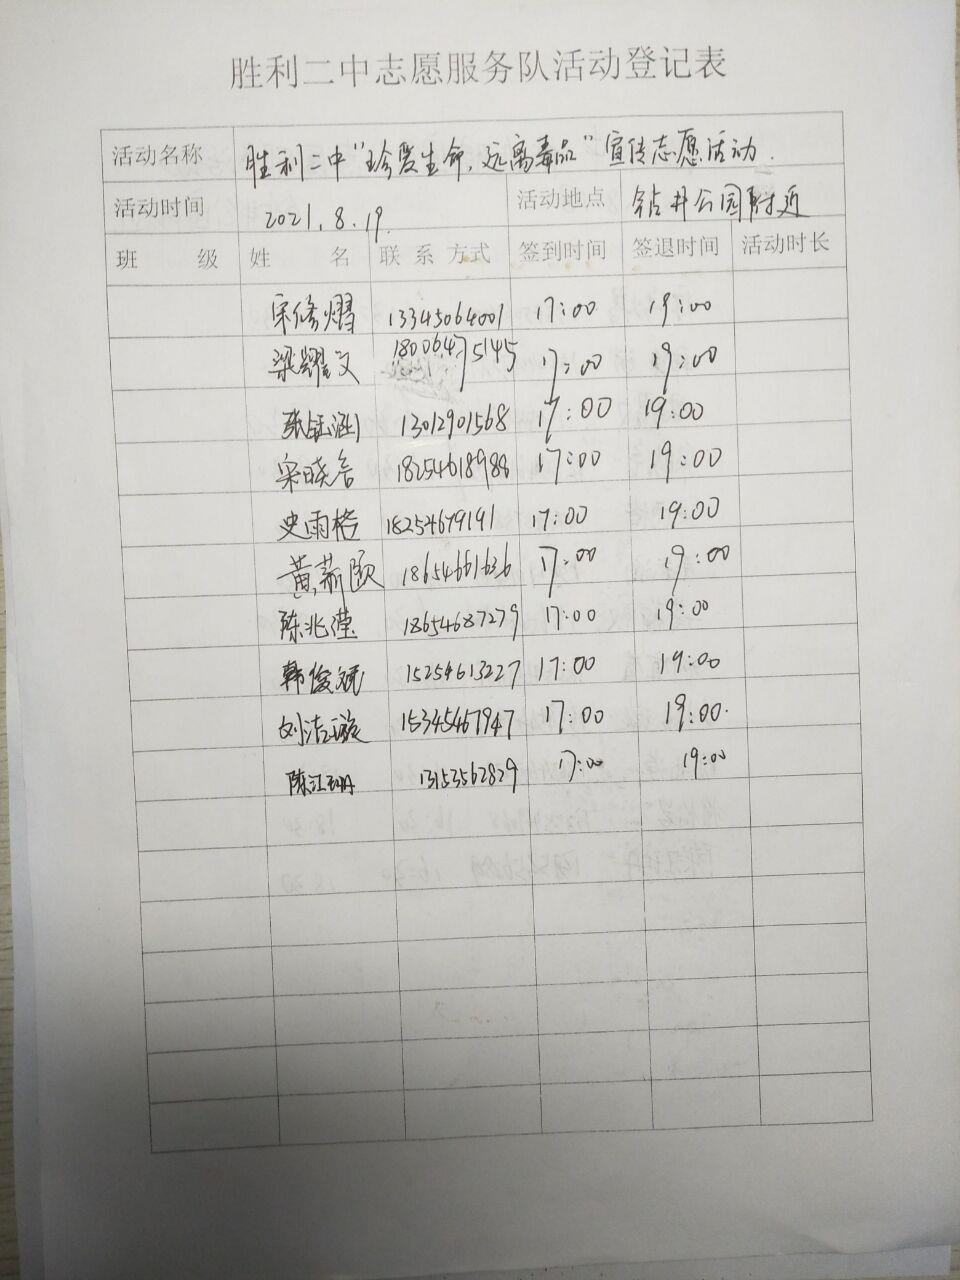 胜利二中志愿服务队活动登记表
活动名称 胜利二中“珍爱生命,远离毒品”宣传志愿活动.
活动时间 2021.8.19. 活动地点 钻井公园附近
班 级 姓 名 联系方式 签到时间 签退时间 活动时长
宋修熠 13345064001 17:00 19:00
梁耀文 18006475145 17:00 19:00
张钰涵 13012901568 17:00 19:00
宋晓 18254618988 17:00 19:00
史雨格 18254679191 17:00 19:00
黄薪颐 18654661636 17:00 19:00
陈兆滢 18654687279 17:00 19:00
韩俊斌 15254613227 17:00 19:00
刘洁璇 15345467947 17:00 19:00.
陈江珊 13153562829 17:00 19:00